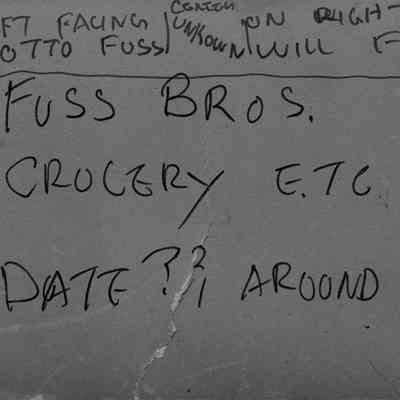 FT FACING CENTER ON RIGHT
OTTO FUSS UNKNOWN WILL F
FUSS BROS.
GROCERY E.TC.
DATE ??, AROUND